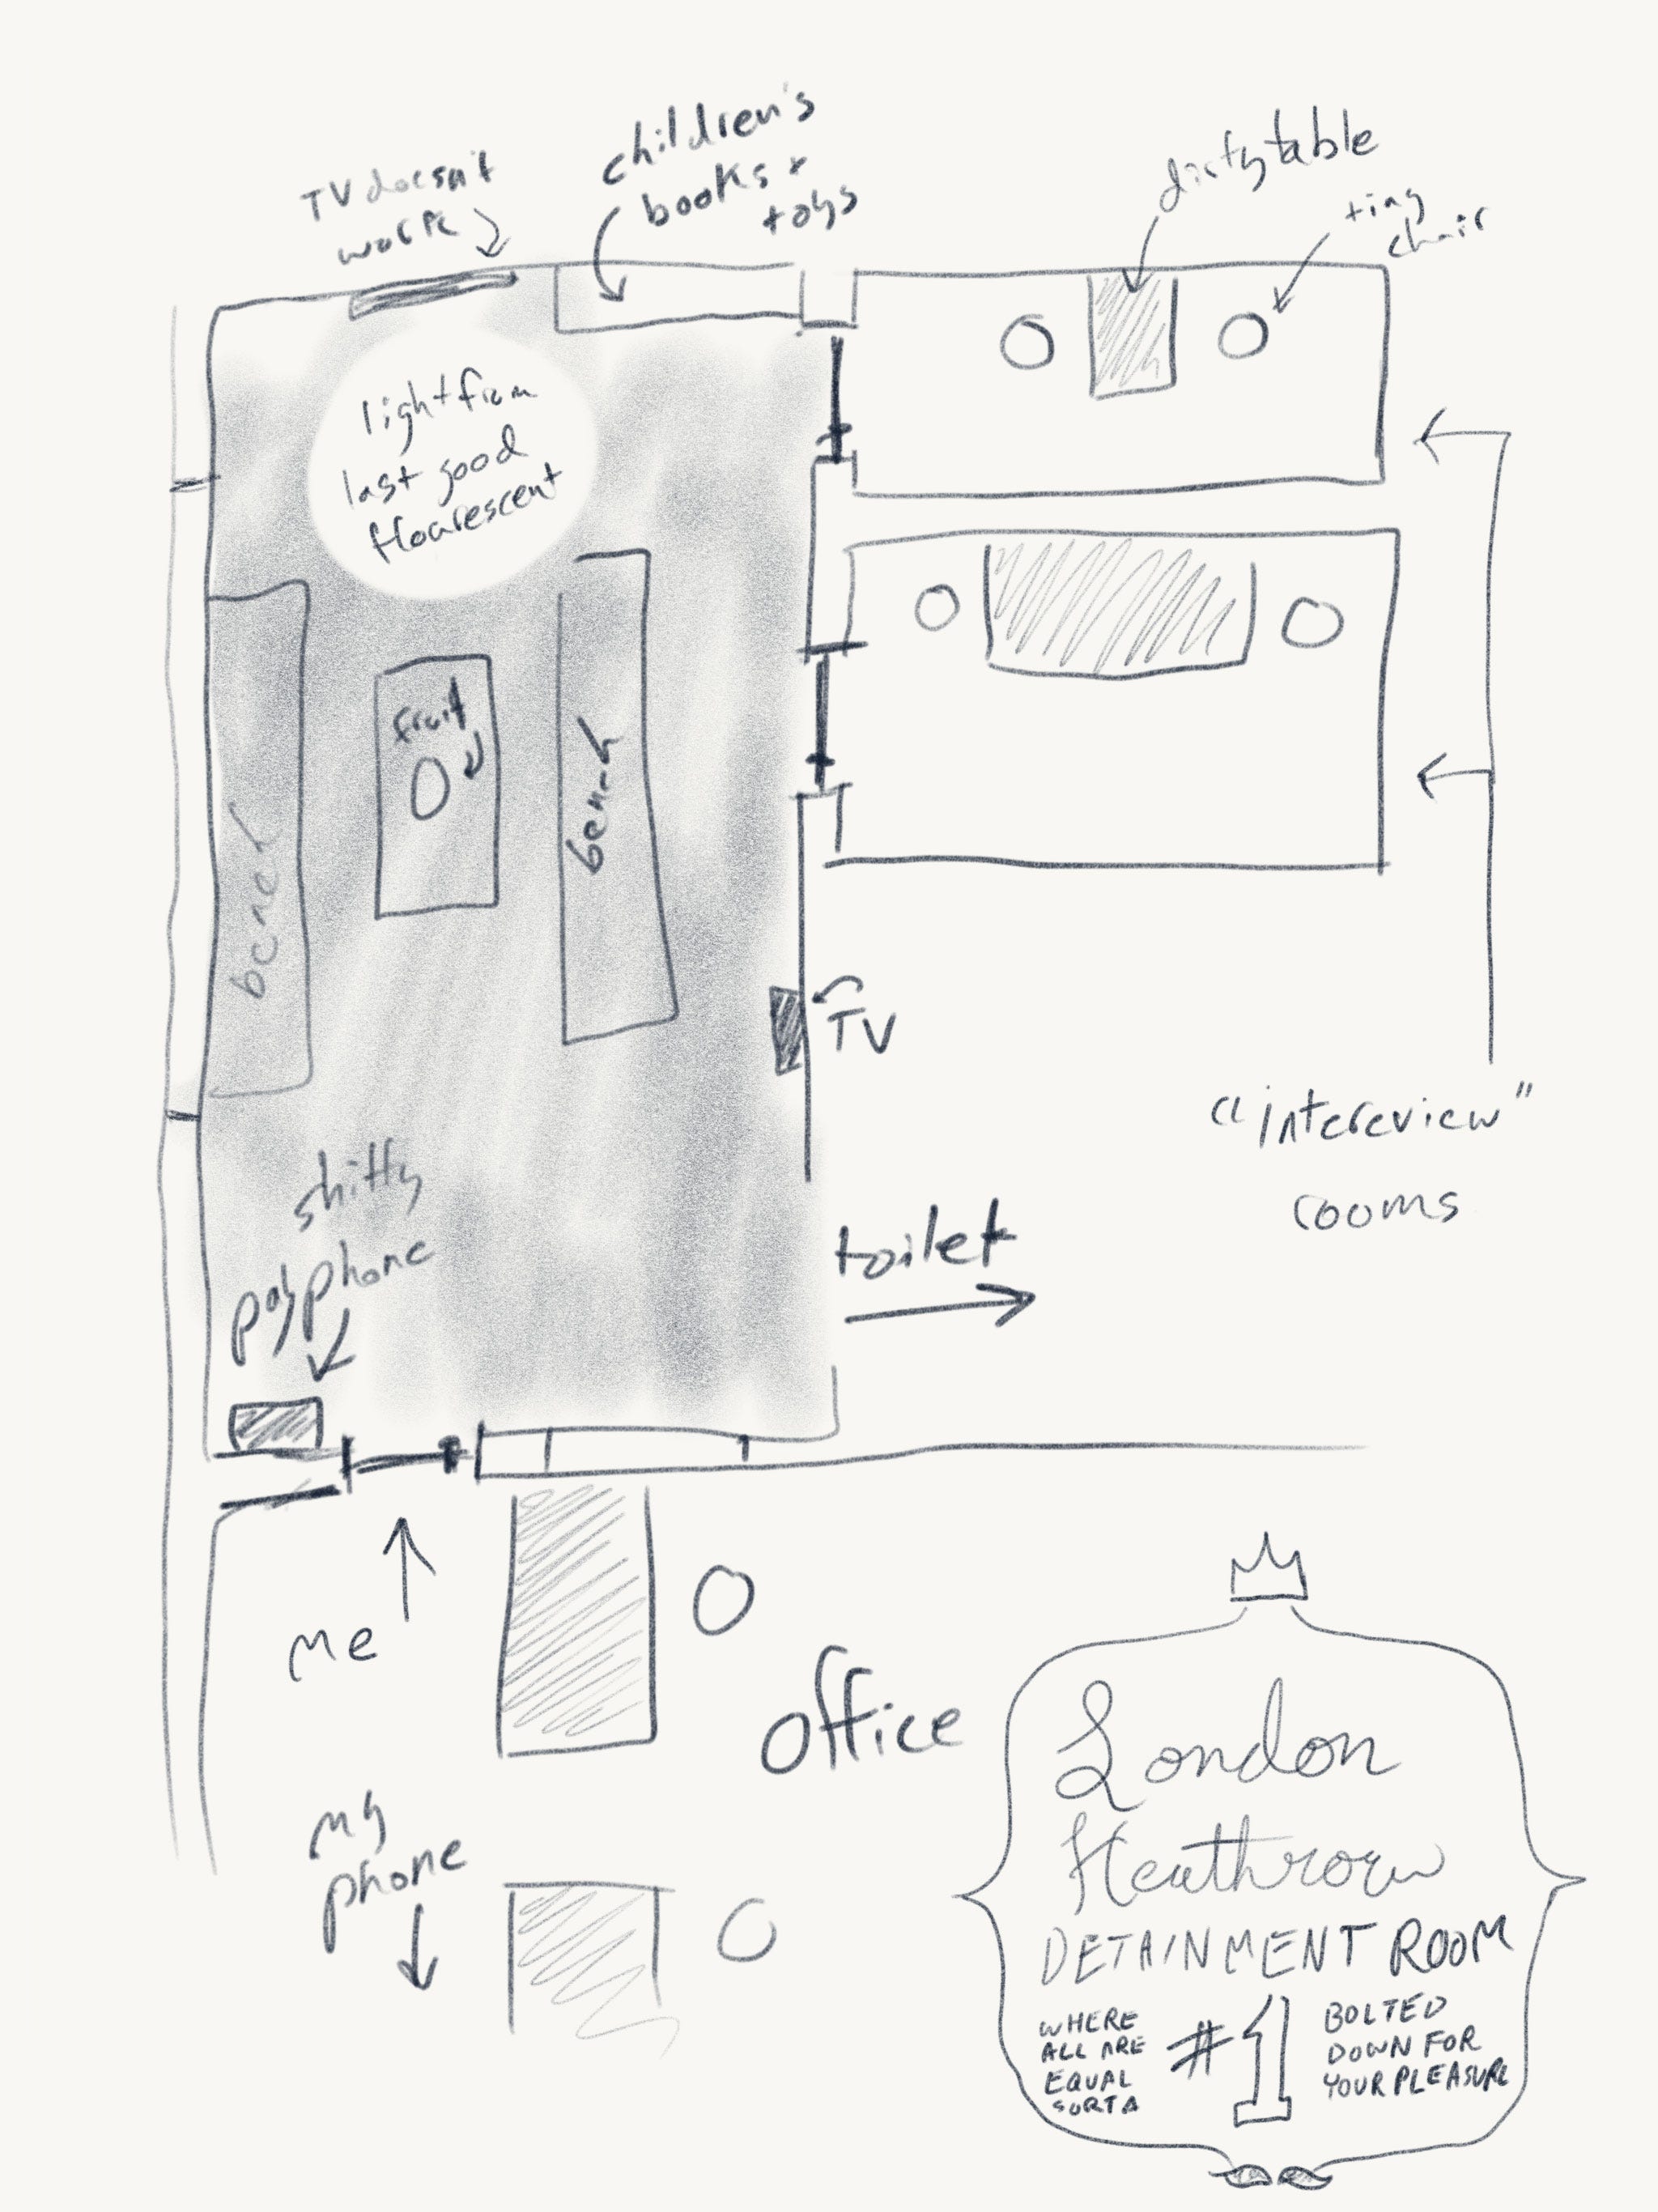 TV doesn't
work
children's
books +
toys
dirty table
tiny
chair
light from
last good
flourescent
fruit
bench
bench
TV
"intereview"
rooms
shitty
payphone
toilet
me
office
my
phone
London
Heathrow
DETAINMENT ROOM
WHERE
ALL ARE
EQUAL
SORTA
#1
BOLTED
DOWN FOR
YOUR PLEASURE